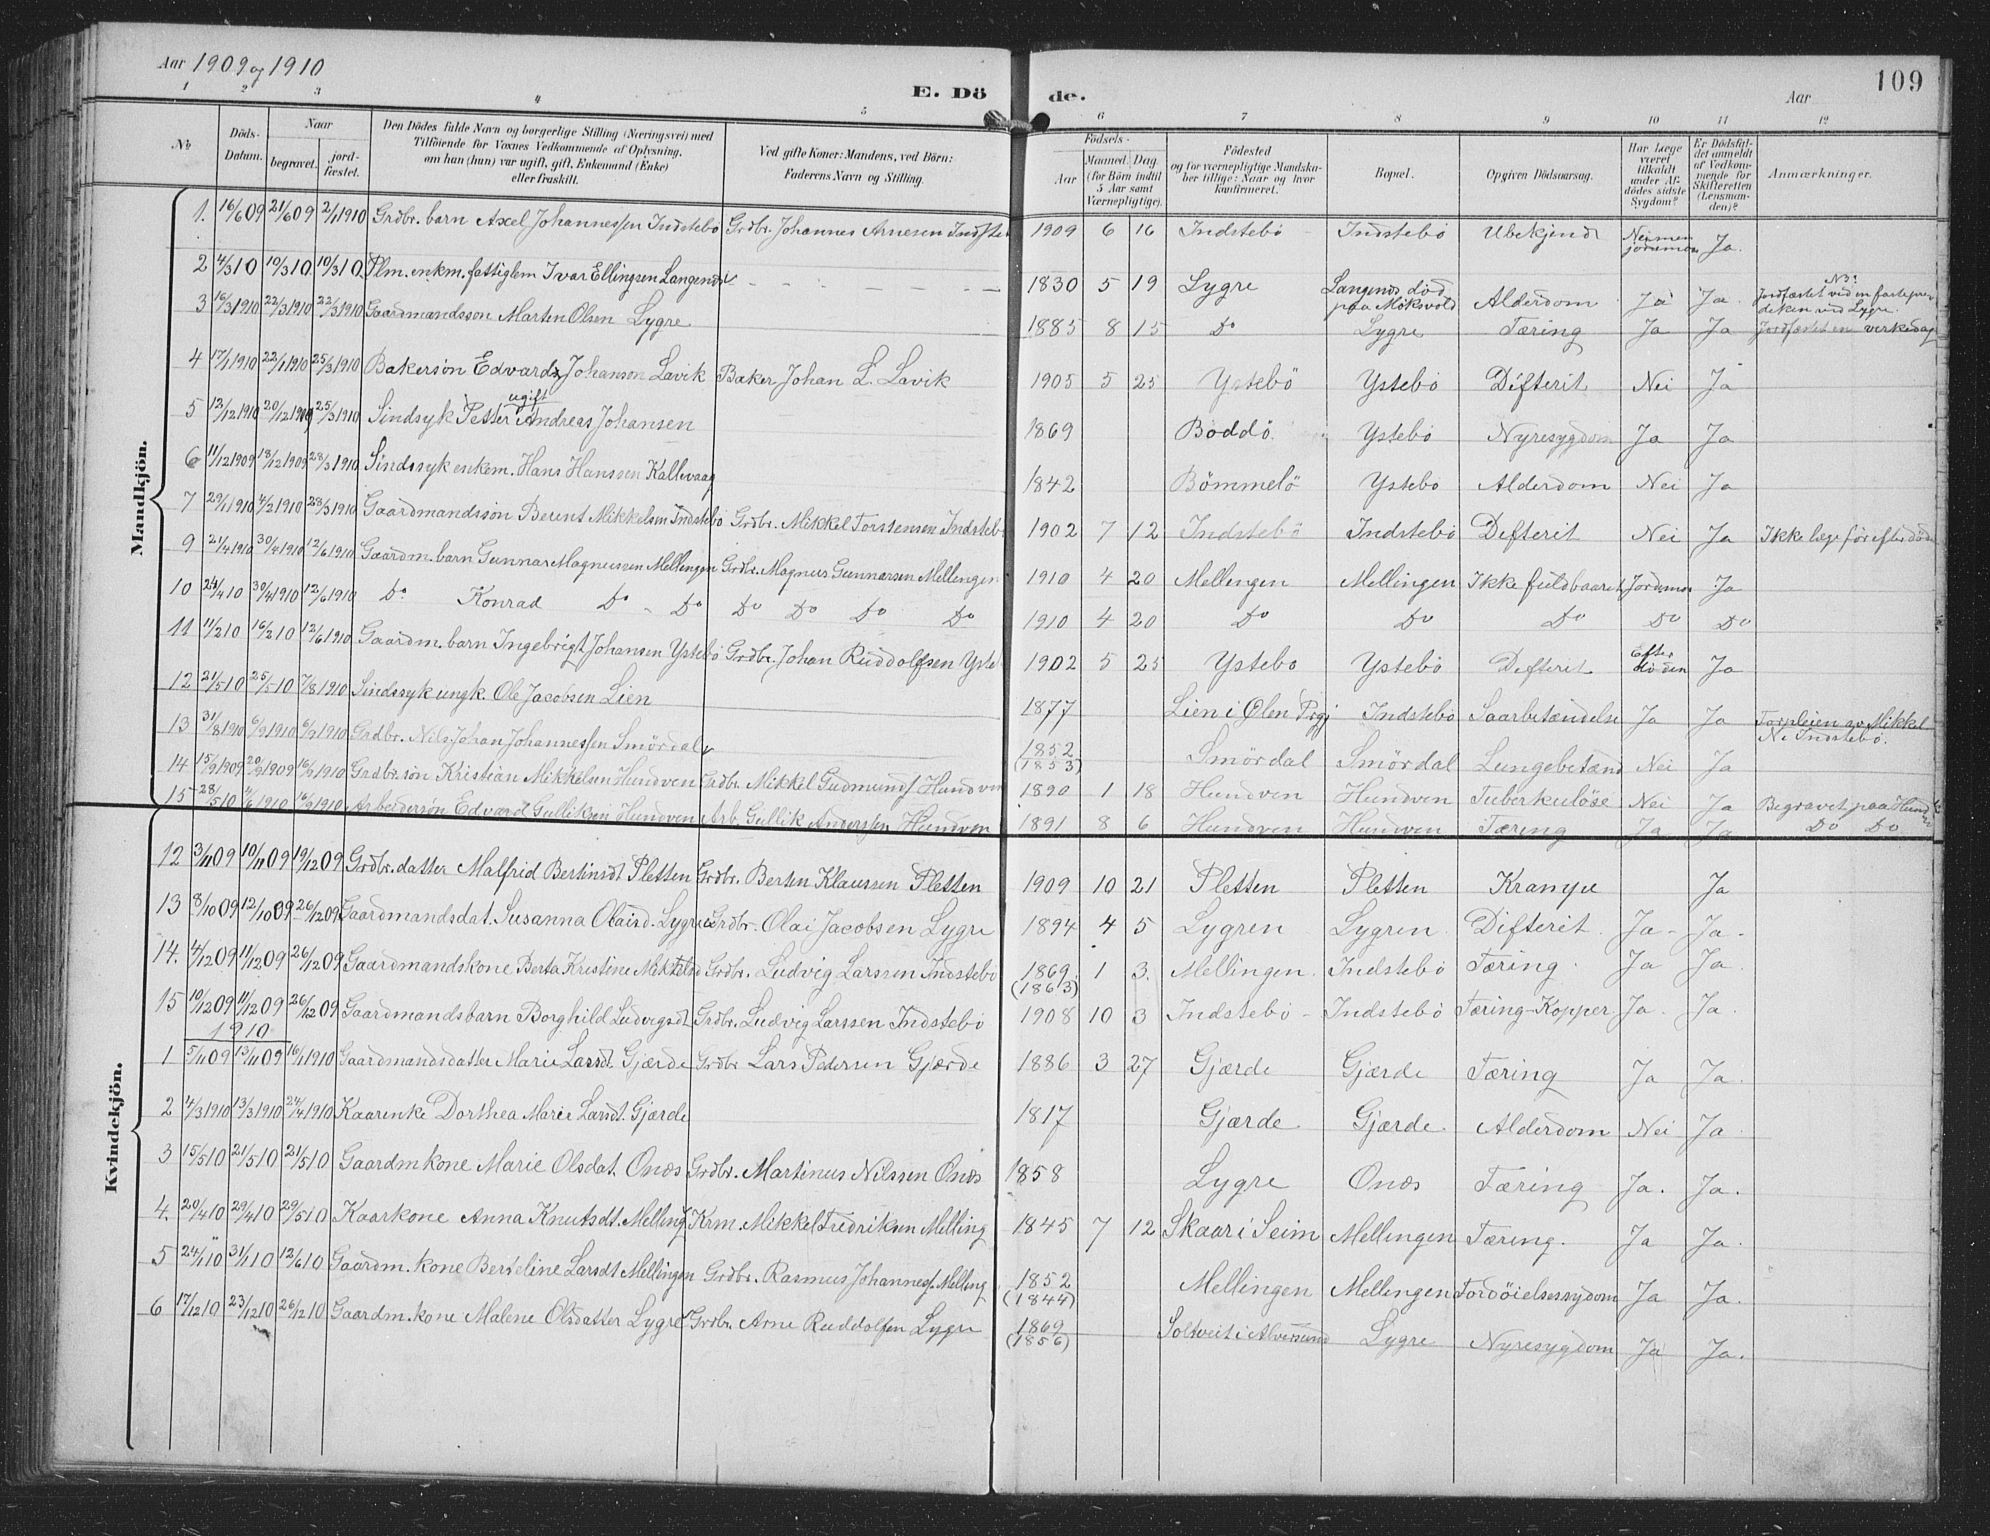 Aar 1909 og 1910
E. Dö
de.
Aar
109
1 2 3 4 5 6 7 8 9 10 11 12
№
Döds-Datum.
Naar
begravet.
jord-fæstet.
Den Dödes fulde Navn og borgerlige Stilling (Næringsvei) med
Tilföiende for Voxnes Vedkommende af Oplysning,
om han (hun) var ugift, gift, Enkemand (Enke)
eller fraskilt.
Ved gifte Koner: Mandens, ved Börn:
Faderens Navn og Stilling.
Födsels-
Aar
Maaned. Dag.
(for Börn indtil
5 Aar samt
Værnepligtige).
Födested
og for værnepligtige Mandska-
ber tillige: Naar og hvor
konfirmeret.
Bopæl.
Opgiven Dödsaarsag.
Har Læge
været
tilkaldt
under Af-
dödes sidste
Sygdom?
Er Dödsfal-
det anmeldt
af Vedkom-
mende for
Skifteretten
(Lensman-
den)?
Anmærkninger.
Mandkjön.
1. 16/6 09 21/6 09 2/1 1910 Grdbr. barn Axel Johannessen Indstebö Grdbr. Johannes Arnesen 1909 6 16 Indstebö Indstebö Ubekjendt Nei men jordmor Ja.
2 4/3 10 10/3 10 10/3 10. Plm. enkm. fattiglem Ivar Ellingsen Langenes 1830 5 19 Lygre Langenes död paa Mökvold Alderdom Ja Ja. NB: Jordfæstet ved en fastepre- diken ved Lygre.
3 16/3 1910 22/3 1910 22/3 1910 Gaardmandssön Marten Olsen Lygre 1885 8 15 Do Lygre Tæring Ja Ja Jordfæstet en verkedag
4 17/1 1910 22/1 1910 25/3 1910 Bakersön Edvard Johanson Lavik Baker Johan L. Lavik 1905 5 25 Ystebö Ystebö Difterit Nei Ja
5 12/12 1910 20/12 25/3 1910 Sindsyk Petter ugift Andreas Johansen 1869 Boddö. Ystebö Nyresygdom Ja Ja
6 11/12 1909 18/12 1909 28/3 1910 Sindssyk enkem. Hans Hanssen Kallevaag 1842 Bömmelö Ystebö Alderdom Nei Ja
7 29/1 1910 4/2 1910 28/3 1910 Gaardmandssön Berent Mikkelsen Indstebö Grdbr. Mikkel Torstensen Indstebö 1902 7 12 Indstebö Indstebö Difterit Nei Ja Ikke læge för efter döden
9 21/4 1910 30/4 1910 12/6 1910 Gaardm. barn Gunnar Magnussen Mellingen Grdbr. Magnus Gunnarsen Mellengen 1910 4 20 Mellengen Mellingen Ikke fuldbaaret Jordmor Ja
10 24/4 10 30/4 1910 12/6 1910 Do Konrad Do Do Do Do Do Do 1910 4 20 Do Do Do Do Do
11 11/2 10 16/2 10 12/6 1910 Gaardm. barn Ingebrigt Johansen Ystebö Grdbr. Johan Ruddolfsen Yste 1902 5 25 Ystebö Ystebö Difterit Efter döden Ja
12 21/5 10 25/5 10 7/8 1910 Sindssyk ungk. Ole Jacobsen Lien 1877 Lien i Ølen Prgj Indstebö Saarbetændelse Ja Ja Forpleien av Mikkel N. Indstebö.
13 31/8 1910 6/9 1910 6/9 1910 Grdbr. Nils Johan Johannessen Smördal 1852 (1853) Smördal Smördal Lungebetænd Nei Ja
14 15/9 1909 20/9 1909 16/9 1910 Grdbr. sön Kristian Mikkelsen Hundven Grdbr Mikkel Gudmunds Hundven 1890 1 18 Hundven Hundven Tuberkulöse Nei Ja Begravet paa Hundven
15 28/5 10 1910 16/9 1910 Arbeidersön Edvard Gulliksen Hundven Arb. Gullik Anderssen Hundven 1891 8 6 Hundven Hundven Tæring Ja Ja Do Do
Kvindekjön.
12 3/11 09 10/11 09 19/12 09 Grdbr. datter Malfrid Bertinsdt Pletten Grdbr. Berten Klaussen Pletten 1909 10 21 Pletten Pletten Krampe Ja
13 8/10 09 12/10 09 26/12 09 Gaardmandsdat. Susanna Olaisd. Lygre Grdbr. Olai Jacobsen Lygre 1894 4 5 Lygren Lygren Difterit. Ja Ja
14. 4/12 09 11/12 09 26/12 09 Gaardmandskone Berta Kristine Grdbr. Ludvig Larssen Indstebö 1869 (1863) 1 3. Mellingen. Indstebö Tæring. Ja Ja
15 10/12 09 11/12 09 26/12 09 Gaardmandsbarn Borghild Ludvigsdt Grdbr. Ludvig Larssen Indstebö 1908 10 3 Indstebö Indstebö Tæring-Kopper Ja. Ja.
1910
1 5/11 09 13/11 09 16/1 1910 Gaardmandsdatter Marie Larsdt. Gjærde Grdbr Lars Pedersen Gjærde 1886 3 27 Gjærde Gjærde Tæring Ja Ja.
2 4/3 1910 13/3 1910 24/4 1910 Kaarenke Dorthea Marie Larsdt. Gjærde 1817 Gjærde Gjærde. Alderdom Nei Ja
3 15/5 10 21/5 10 21/5 10 Gaardmkone Marie Olsdat. Onæs Grdbr. Martinus Nilssen Onæs 1858 Lygre Onæs Tæring Ja. Ja.
4. 20/4 10 29/4 10 29/5 10 Kaarkone Anna Knutsdt. Melling Krm. Mikkel Fredriksen Melling 1845 7 12 Skaar i Seim Mellingen Tæring. Ja Ja.
5 24/1 10 31/1 10 12/6 10 Gaardm. kone Berteline Larsdt Mellingen Grdbr. Rasmus Johannes. Melling 1852 (1844) Mellingen Mellingen Fordöielsessygdom Ja Ja.
6 17/12 10 23/12 10 26/12 10 Gaardm. kone Malene Olsdatter Lygre Grdbr. Arne Ruddolfsen Lygre 1869 (1856) Soltveit i Alversund Lygre Nyresygdom Ja Ja.